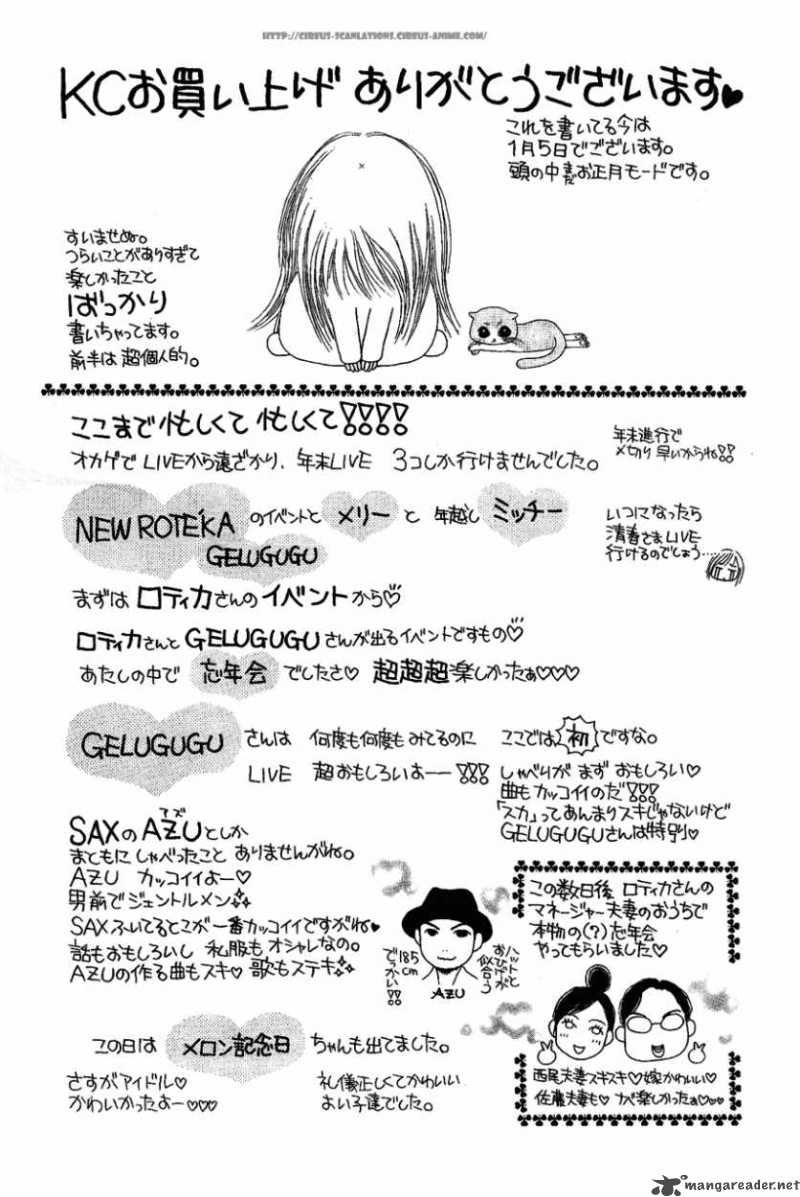 HTTP://CIREUS-SCANLATIONS.CIREUS-ANIME.COM/
KCお買い上げ ありがとうございます♥
これを書いてる今は
1月5日でございます。
頭の中まだお正月モードです。
すいませぬ。
つらいことがありすぎて
楽しかったこと
ばっかり
書いちゃってます。
前半は 超個人的。
ここまで忙しくて 忙しくて!!!!
オカゲで LIVEから遠ざかり、年末LIVE 3コしか行けませんでした。
年末進行で
〆切り 早いからね!!
NEW ROTE'KA のイベントと メリー と 年越し ミッチー
GELUGUGU
いつになったら
清春さまLIVE
行けるのでしょう……
まずは ロティカさんの イベントから♡
ロティカさんと GELUGUGUさんが出るイベントですもの♡
あたしの中で 忘年会 でしたさ♡ 超超超楽しかったぁ♡♡♡
GELUGUGU さんは 何度も何度も みてるのに
LIVE 超おもしろいよーー!!!
ここでは 初 ですな。
しゃべりが まず おもしろい♡
曲も カッコイイのだ!!!
「スカ」って あんまりスキじゃないけど
GELUGUGUさんは 特別♡
アズ
SAXの AZUとしか
まともに しゃべったこと ありませんがね。
AZU カッコイイよー♡
男前で ジェントルメン
SAXふいてるとこが 一番カッコイイですがね♥
話もおもしろいし 私服も オシャレなの。
AZUの作る曲もスキ♡ 歌もステキ
ハットと
おひげが
似合う
185cm
でっかい!!
AZU
この数日後 ロティカさんの
マネージャー夫妻のおうちで
本物の(?)忘年会
やってもらいました♡
西尾夫妻スキスキ♡嫁かわいい♡
佐藤夫妻も♡ ナベ楽しかったぁ♡♡♡
この日は メロン記念日 ちゃんも出てました。
さすがアイドル♡
かわいかったよー♡♡♡
礼儀正しくてかわいい
よい子達でした。
mangareader.net